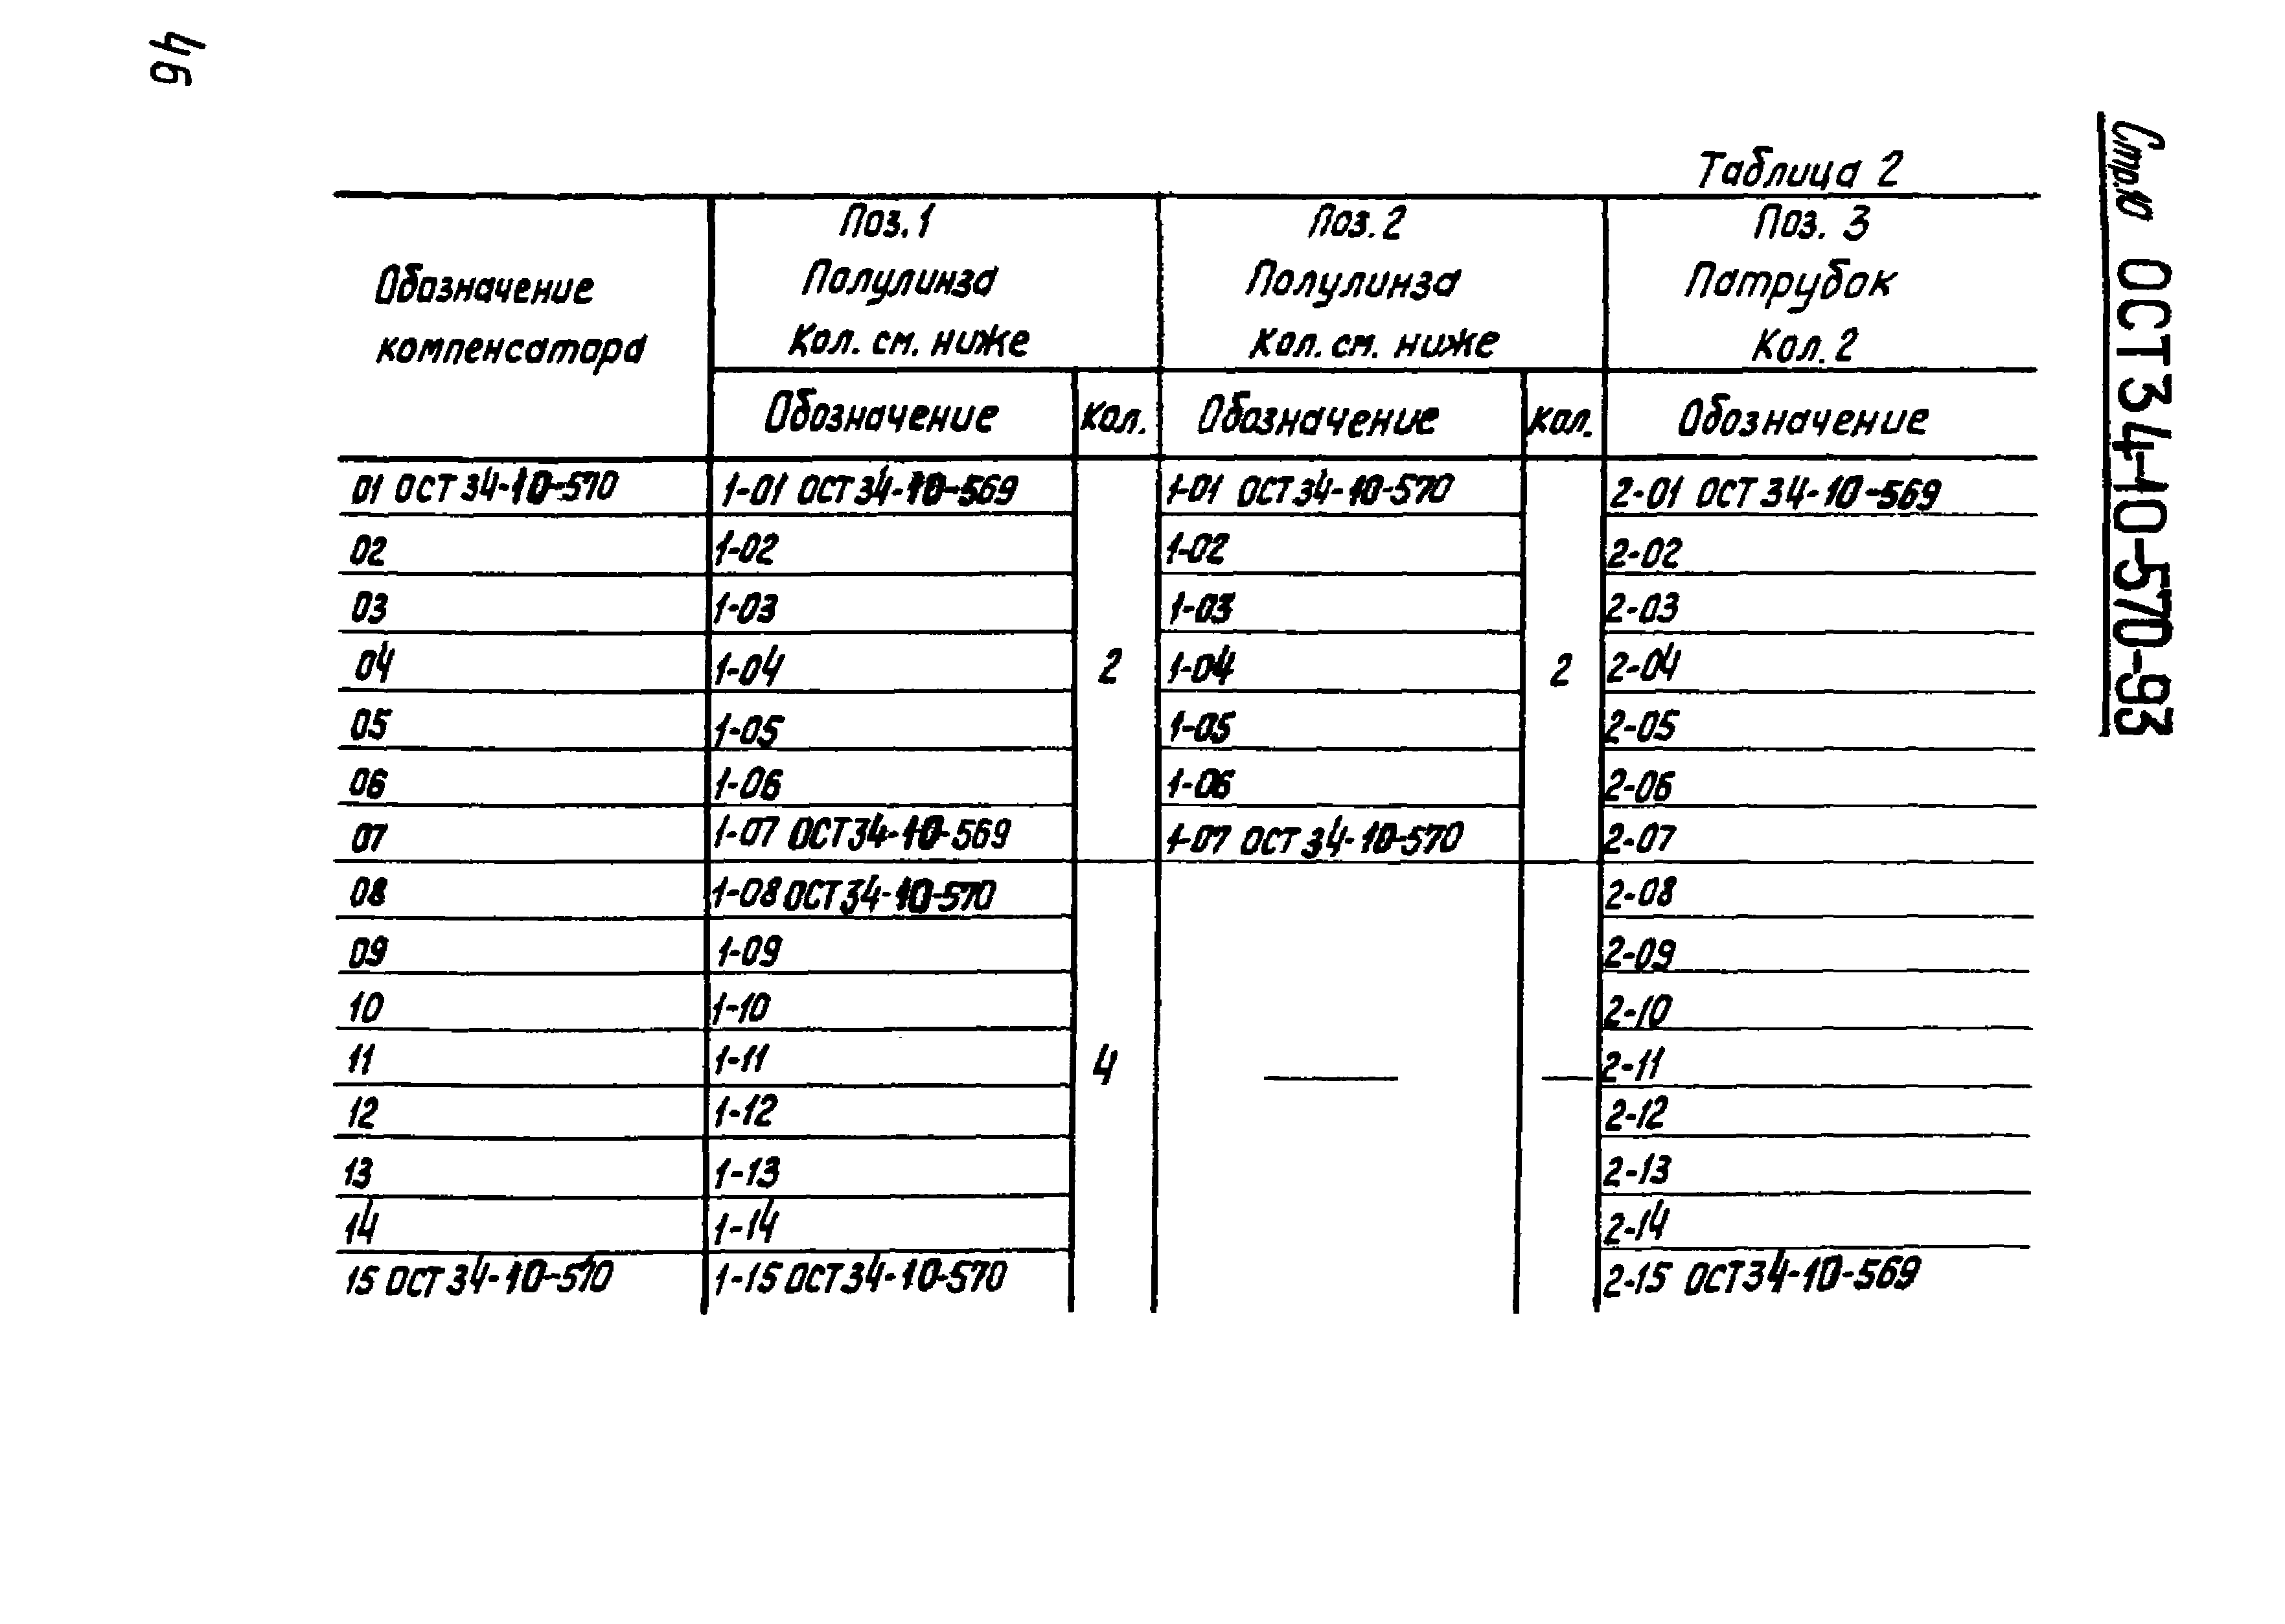 46
Стр.10 ОСТ 34-10-570-93
Таблица 2
Обозначение компенсатора | Поз. 1 Полулинза Кол. см. ниже | Поз. 2 Полулинза Кол. см. ниже | Поз. 3 Патрубок Кол. 2
Обозначение | Кол. | Обозначение | Кол. | Обозначение
01 ОСТ 34-10-570 | 1-01 ОСТ 34-10-569 | 1-01 ОСТ 34-10-570 | 2-01 ОСТ 34-10-569
02 | 1-02 | 1-02 | 2-02
03 | 1-03 | 1-03 | 2-03
04 | 1-04 | 2 | 1-04 | 2 | 2-04
05 | 1-05 | 1-05 | 2-05
06 | 1-06 | 1-06 | 2-06
07 | 1-07 ОСТ 34-10-569 | 1-07 ОСТ 34-10-570 | 2-07
08 | 1-08 ОСТ 34-10-570 | 2-08
09 | 1-09 | 2-09
10 | 1-10 | 2-10
11 | 1-11 | 4 | — | — | 2-11
12 | 1-12 | 2-12
13 | 1-13 | 2-13
14 | 1-14 | 2-14
15 ОСТ 34-10-570 | 1-15 ОСТ 34-10-570 | 2-15 ОСТ 34-10-569